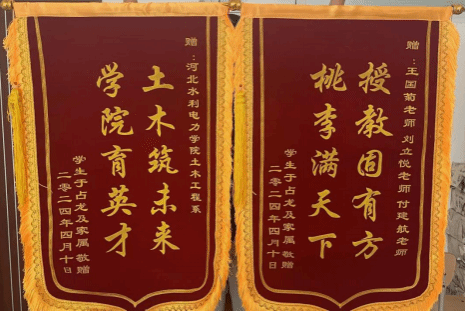 赠：河北水利电力学院土木工程系
土木筑未来
学院育英才
学生于占龙及家属敬赠
二零二四年四月十日
赠：王国菊老师 刘立悦老师 付建航老师
授教固有方
桃李满天下
学生于占龙及家属敬赠
二零二四年四月十日